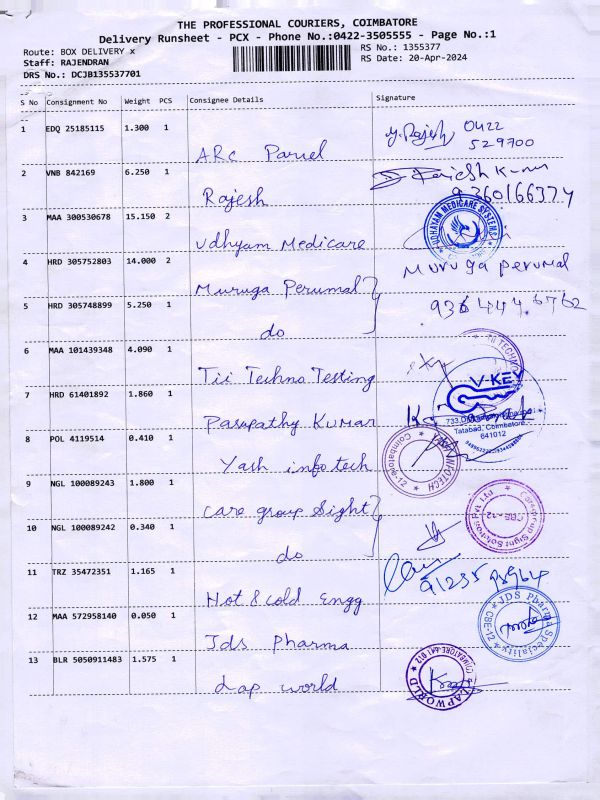 THE PROFESSIONAL COURIERS, COIMBATORE
Delivery Runsheet - PCX - Phone No.:0422-3505555 - Page No.:1
Route: BOX DELIVERY x
RS No.: 1355377
Staff: RAJENDRAN
RS Date: 20-Apr-2024
DRS No.: DCJB135537701
S No Consignment No Weight PCS Consignee Details Signature
1 EDQ 25185115 1.300 1
ARC Parcel
y. Rajesh 0422
529700
2 VNB 842169 6.250 1
Rajesh
Rajesh Kumar
9360166374
3 MAA 300530678 15.150 2
Udhyam Medicare
UDHAYAM MEDICARE SYSTEMS
4 HRD 305752803 14.000 2
Muruga Perumal
Muruga perumal
5 HRD 305748899 5.250 1
do
936 444 6762
6 MAA 101439348 4.090 1
Tii Techno Testing
7 HRD 61401892 1.860 1
Pasupathy Kumar
V-KEY
Tatabad, Coimbatore
641012
8 POL 4119514 0.410 1
Yash infotech
INFOTECH
Coimbatore-12
9 NGL 100089243 1.800 1
Care group Sight
10 NGL 100089242 0.340 1
do
CBE-12
11 TRZ 35472351 1.165 1
Hot & cold Engg
12 MAA 572958140 0.050 1
Jds Pharma
JDS Pharma Speciality
CBE-12
13 BLR 5050911483 1.575 1
Lap world
LAPWORLD
COIMBATORE-641 012